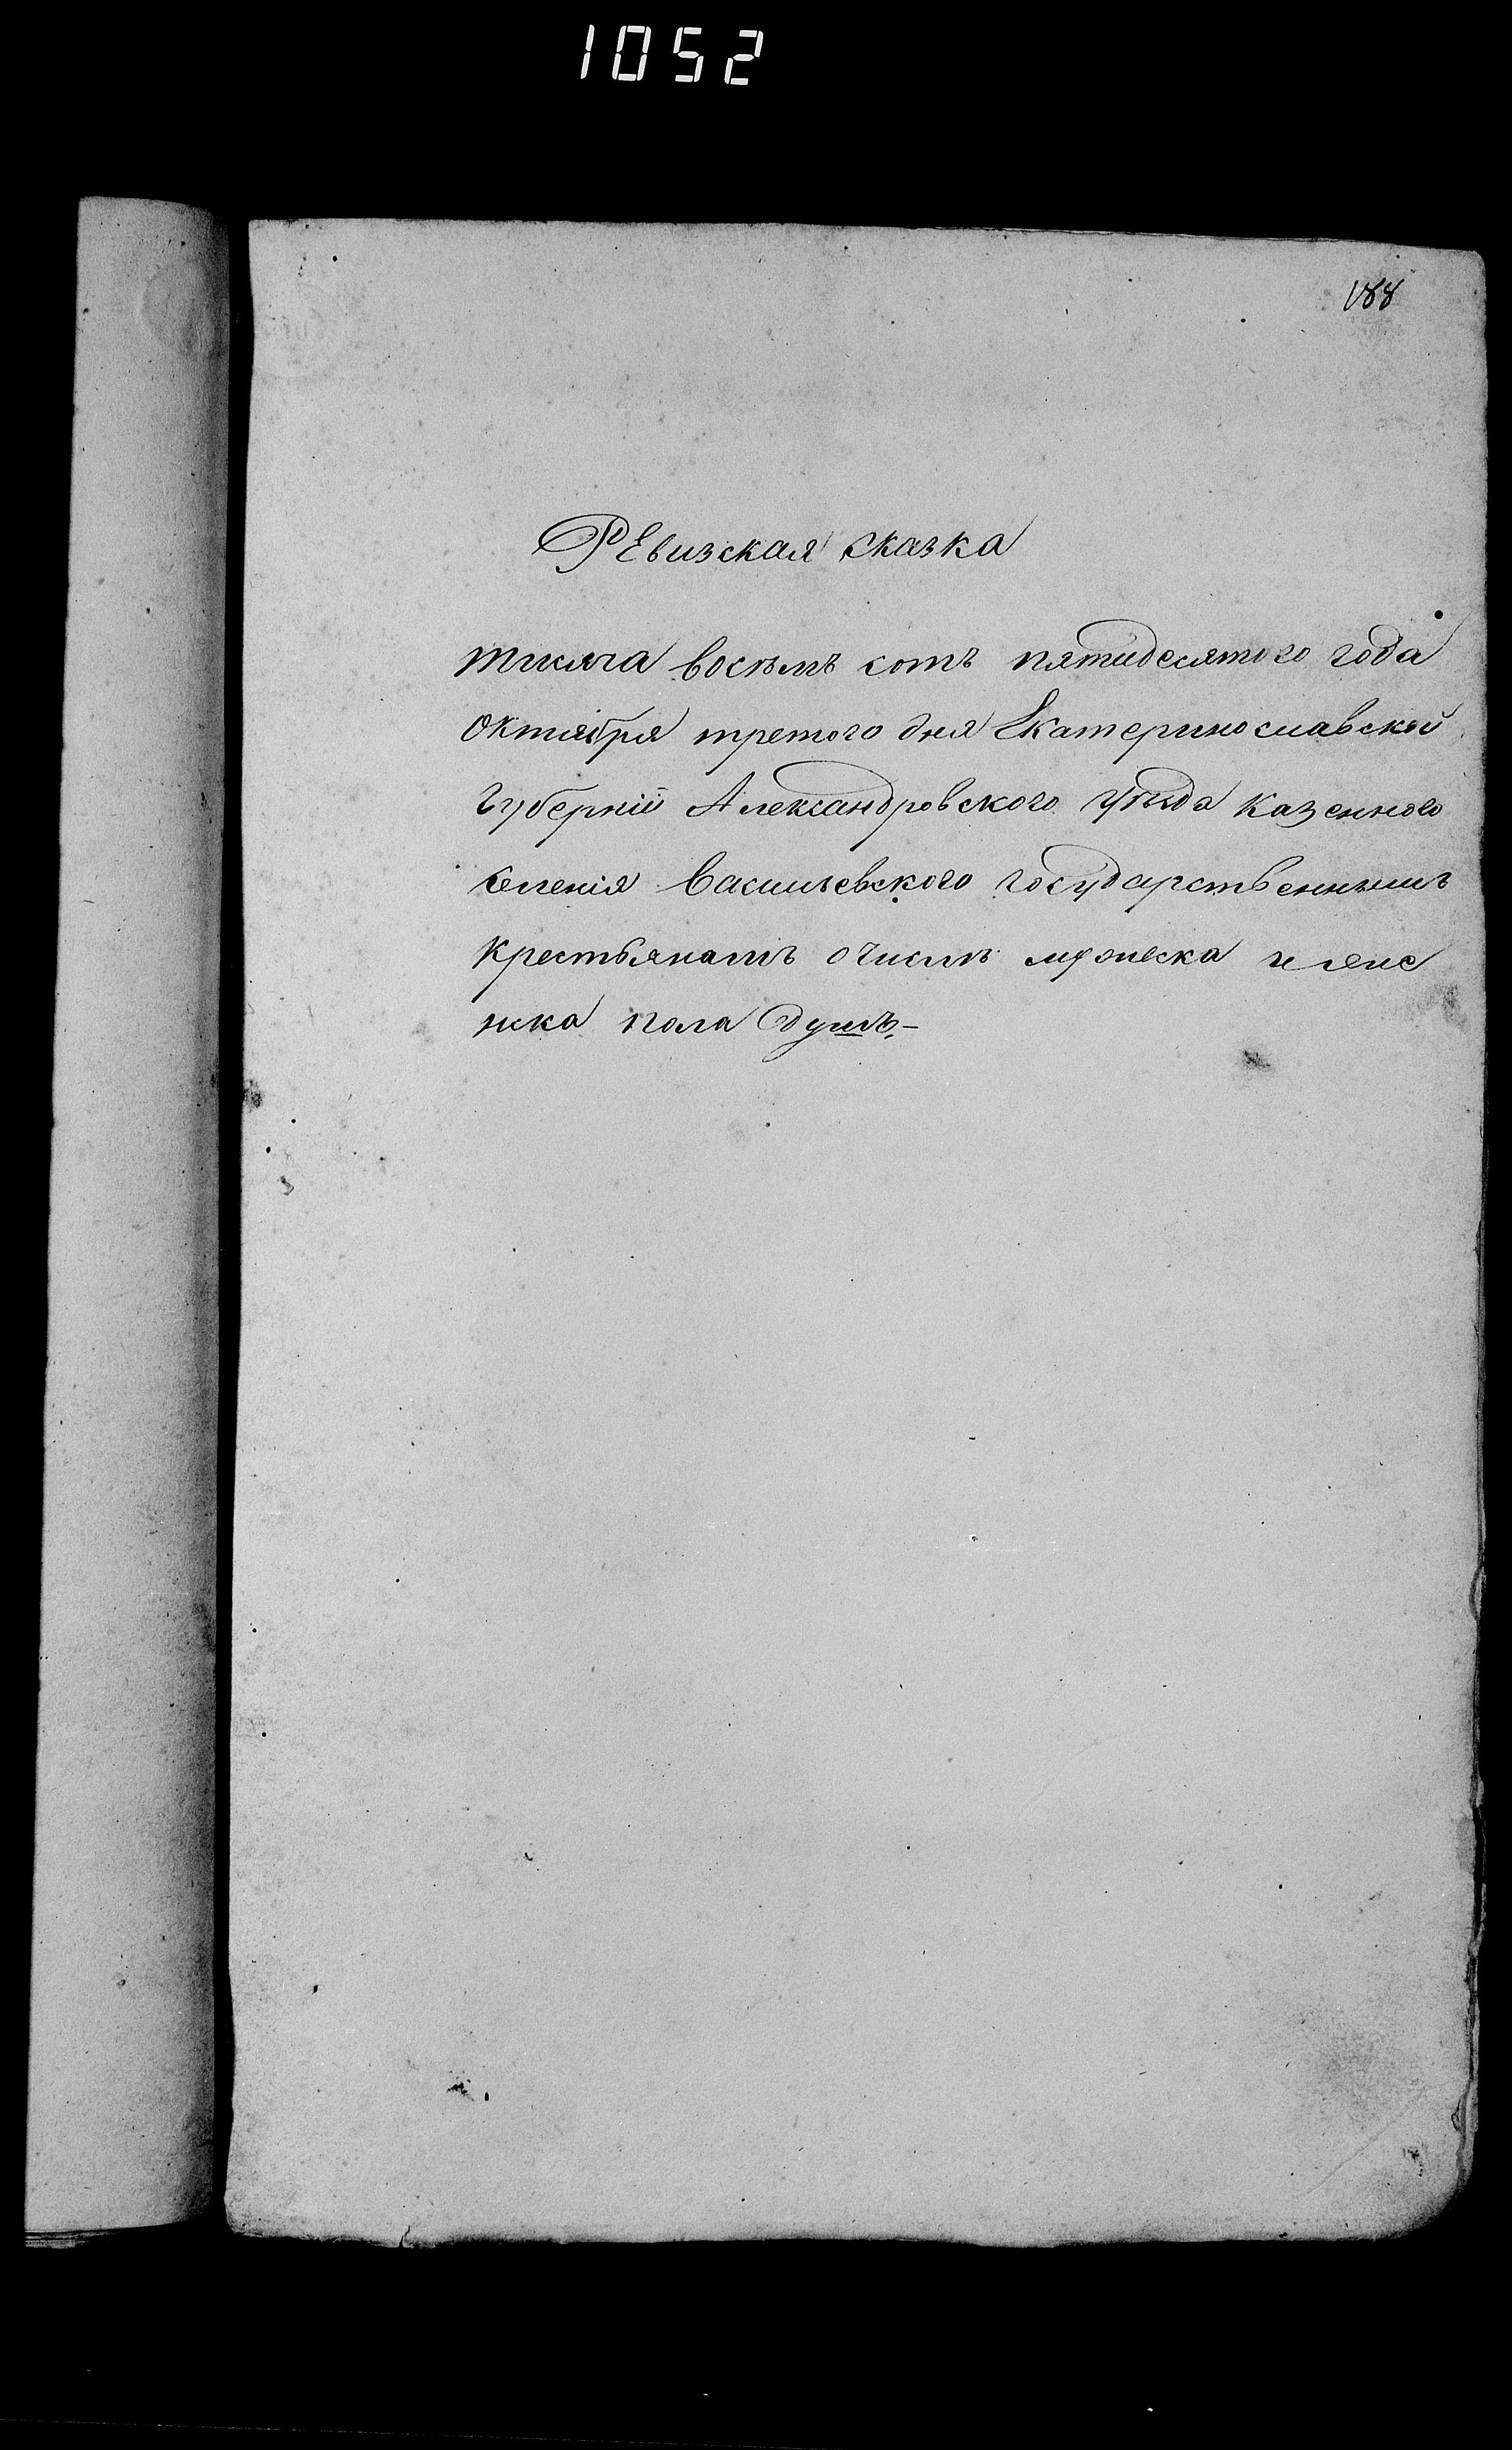 1052
188
Ревизская сказка
тысяча восемь сотъ пятидесятого года
Октября третого дня Екатеринославской
Губерніи Александровского уѣзда казенного
селенія Васильевского государственнымъ
крестьянамъ о числѣ мужеска и жене
нска пола душъ.–